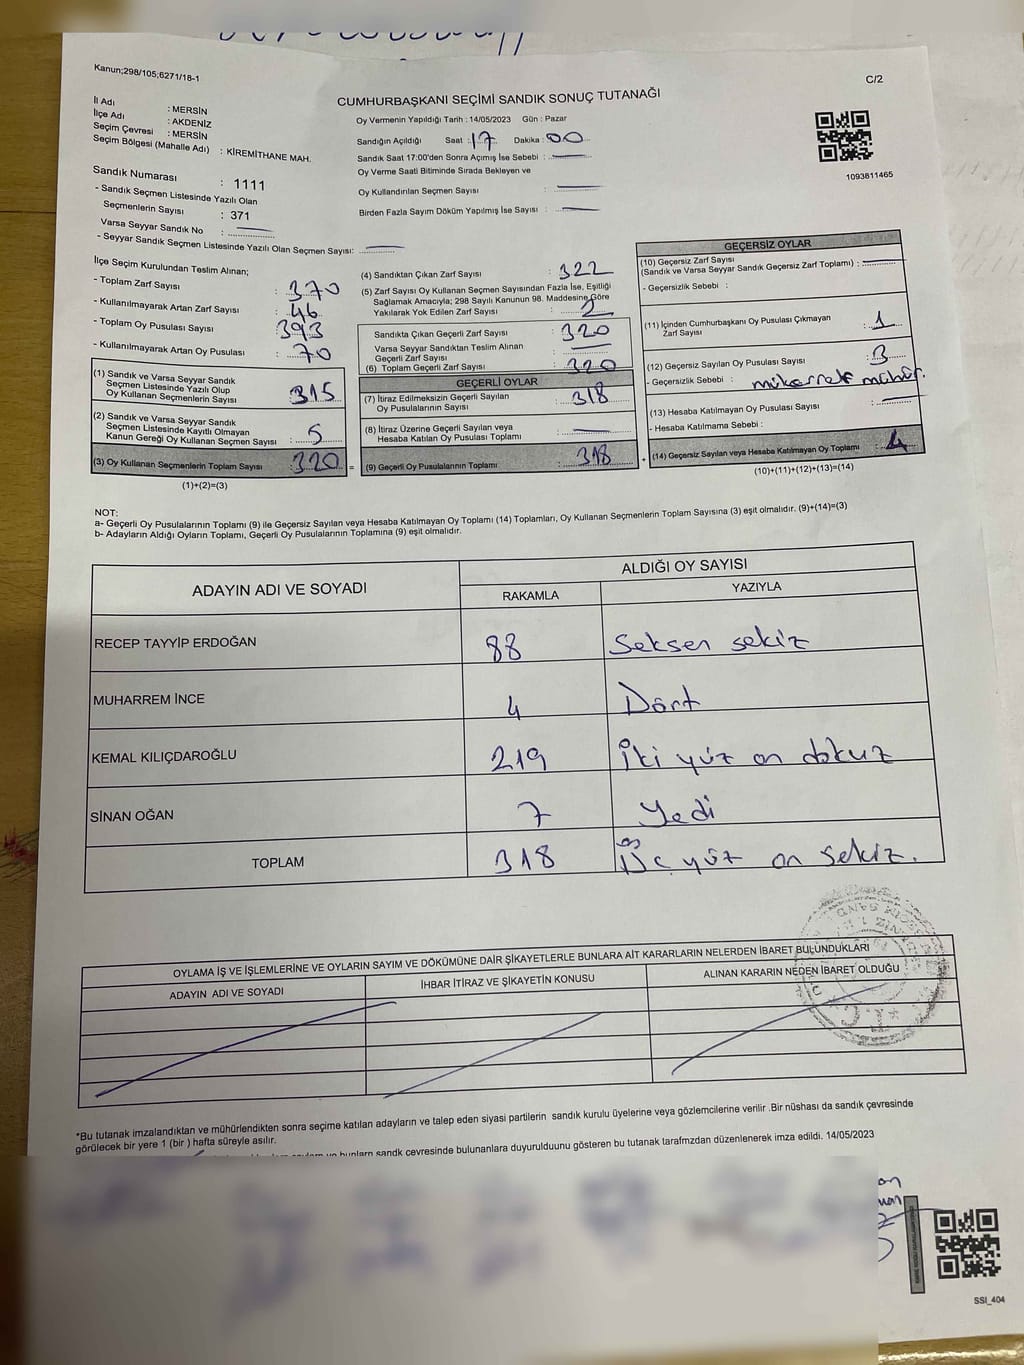 Kanun;298/105;6271/18-1
C/2
CUMHURBAŞKANI SEÇİMİ SANDIK SONUÇ TUTANAĞI
İl Adı : MERSİN
İlçe Adı : AKDENİZ
Seçim Çevresi : MERSİN
Seçim Bölgesi (Mahalle Adı) : KİREMİTHANE MAH.
Oy Vermenin Yapıldığı Tarih : 14/05/2023 Gün : Pazar
Sandığın Açıldığı Saat : 17 Dakika : 00
Sandık Saat 17:00'den Sonra Açımış İse Sebebi :
Oy Verme Saati Bitiminde Sırada Bekleyen ve
Oy Kullandırılan Seçmen Sayısı :
Birden Fazla Sayım Döküm Yapılmış İse Sayısı :
1093811465
Sandık Numarası : 1111
- Sandık Seçmen Listesinde Yazılı Olan
Seçmenlerin Sayısı : 371
Varsa Seyyar Sandık No :
- Seyyar Sandık Seçmen Listesinde Yazılı Olan Seçmen Sayısı:
İlçe Seçim Kurulundan Teslim Alınan;
- Toplam Zarf Sayısı : 370
- Kullanılmayarak Artan Zarf Sayısı : 46
- Toplam Oy Pusulası Sayısı : 393
- Kullanılmayarak Artan Oy Pusulası : 70
(1) Sandık ve Varsa Seyyar Sandık
Seçmen Listesinde Yazılı Olup
Oy Kullanan Seçmenlerin Sayısı : 315
(2) Sandık ve Varsa Seyyar Sandık
Seçmen Listesinde Kayıtlı Olmayan
Kanun Gereği Oy Kullanan Seçmen Sayısı : 5
(3) Oy Kullanan Seçmenlerin Toplam Sayısı : 320
(1)+(2)=(3)
(4) Sandıktan Çıkan Zarf Sayısı : 322
(5) Zarf Sayısı Oy Kullanan Seçmen Sayısından Fazla İse, Eşitliği
Sağlamak Amacıyla; 298 Sayılı Kanunun 98. Maddesine Göre
Yakılarak Yok Edilen Zarf Sayısı : 2
Sandıkta Çıkan Geçerli Zarf Sayısı : 320
Varsa Seyyar Sandıktan Teslim Alınan
Geçerli Zarf Sayısı :
(6) Toplam Geçerli Zarf Sayısı : 320
GEÇERLİ OYLAR
(7) İtiraz Edilmeksizin Geçerli Sayılan
Oy Pusulalarının Sayısı : 318
(8) İtiraz Üzerine Geçerli Sayılan veya
Hesaba Katılan Oy Pusulası Toplamı :
= (9) Geçerli Oy Pusulalarının Toplamı : 318
GEÇERSİZ OYLAR
(10) Geçersiz Zarf Sayısı
(Sandık ve Varsa Seyyar Sandık Geçersiz Zarf Toplamı) :
- Geçersizlik Sebebi :
(11) İçinden Cumhurbaşkanı Oy Pusulası Çıkmayan
Zarf Sayısı : 1
(12) Geçersiz Sayılan Oy Pusulası Sayısı : 3
- Geçersizlik Sebebi : mükerrer mühür.
(13) Hesaba Katılmayan Oy Pusulası Sayısı :
- Hesaba Katılmama Sebebi :
+ (14) Geçersiz Sayılan veya Hesaba Katılmayan Oy Toplamı : 4
(10)+(11)+(12)+(13)=(14)
NOT:
a- Geçerli Oy Pusulalarının Toplamı (9) ile Geçersiz Sayılan veya Hesaba Katılmayan Oy Toplamı (14) Toplamları, Oy Kullanan Seçmenlerin Toplam Sayısına (3) eşit olmalıdır. (9)+(14)=(3)
b- Adayların Aldığı Oyların Toplamı, Geçerli Oy Pusulalarının Toplamına (9) eşit olmalıdır.
ADAYIN ADI VE SOYADI ALDIĞI OY SAYISI
RAKAMLA YAZIYLA
RECEP TAYYİP ERDOĞAN 88 Seksen sekiz
MUHARREM İNCE 4 Dört
KEMAL KILIÇDAROĞLU 219 İki yüz on dokuz
SİNAN OĞAN 7 Yedi
TOPLAM 318 Üç yüz on sekiz.
OYLAMA İŞ VE İŞLEMLERİNE VE OYLARIN SAYIM VE DÖKÜMÜNE DAİR ŞİKAYETLERLE BUNLARA AİT KARARLARIN NELERDEN İBARET BULUNDUKLARI
ADAYIN ADI VE SOYADI İHBAR İTİRAZ VE ŞİKAYETİN KONUSU ALINAN KARARIN NEDEN İBARET OLDUĞU
*Bu tutanak imzalandıktan ve mühürlendikten sonra seçime katılan adayların ve talep eden siyasi partilerin sandık kurulu üyelerine veya gözlemcilerine verilir .Bir nüshası da sandık çevresinde
görülecek bir yere 1 (bir ) hafta süreyle asılır.
bunların sandk çevresinde bulunanlara duyurulduunu gösteren bu tutanak tarafmzdan düzenlenerek imza edildi. 14/05/2023
SSI_404